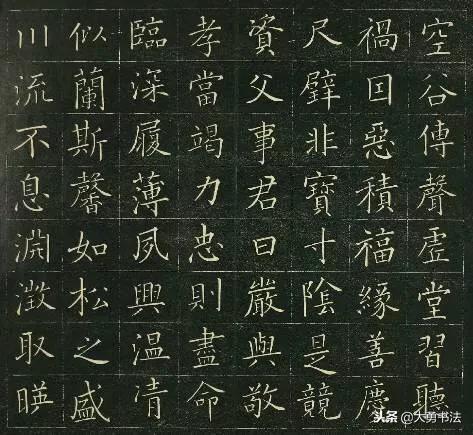 空谷傳聲虛堂習聽
禍因惡積福緣善慶
尺璧非寶寸陰是競
資父事君曰嚴與敬
孝當竭力忠則盡命
臨深履薄夙興溫凊
似蘭斯馨如松之盛
川流不息淵澂取暎
头条 @大勇书法